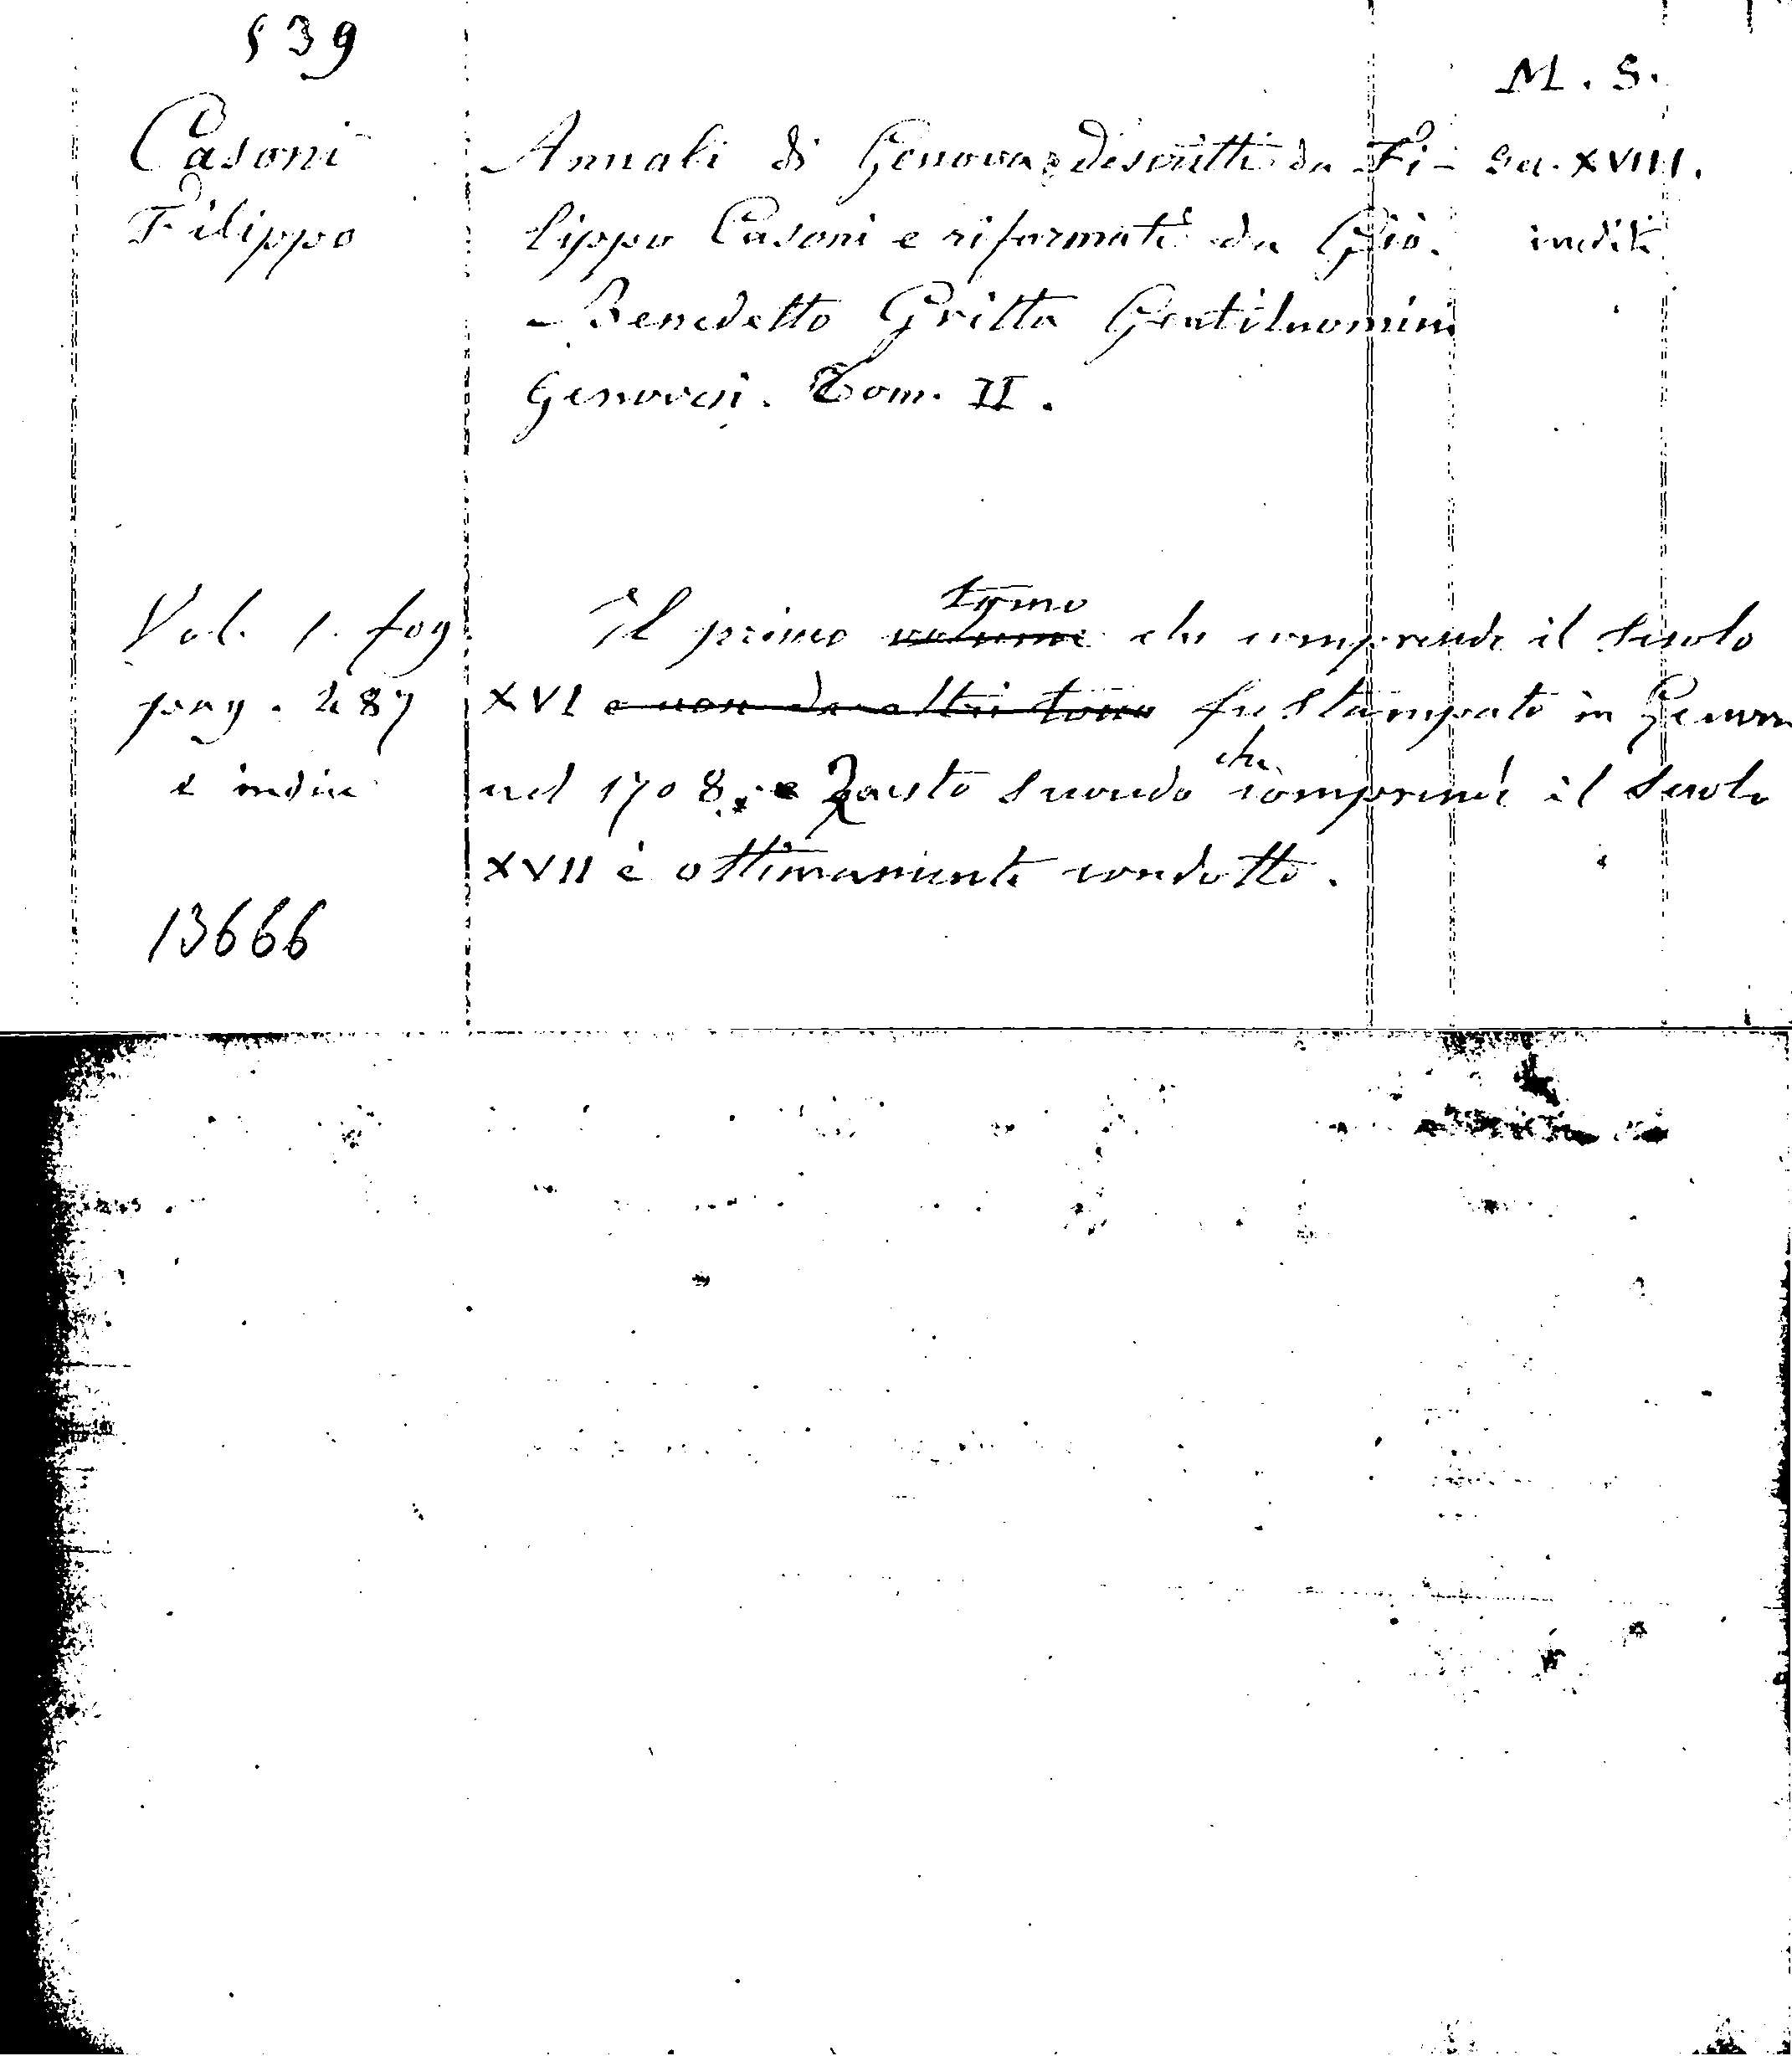 539
M. S.
Casoni Annali di Genova descritti da Fi- Sec. XVIII.
Filippo lippo Casoni e riformati da Gio. inediti
Benedetto Gritta Gentiluomini
Genovesi. Tom. II.
tomo
Vol. 1. fog. Il primo volume che comprende il secolo
pag. 287 XVI e non da altri tomo fu stampato in Genova
che
e indice nel 1708. Questo secondo comprende il secolo
XVII è ottimamente condotto.
13666